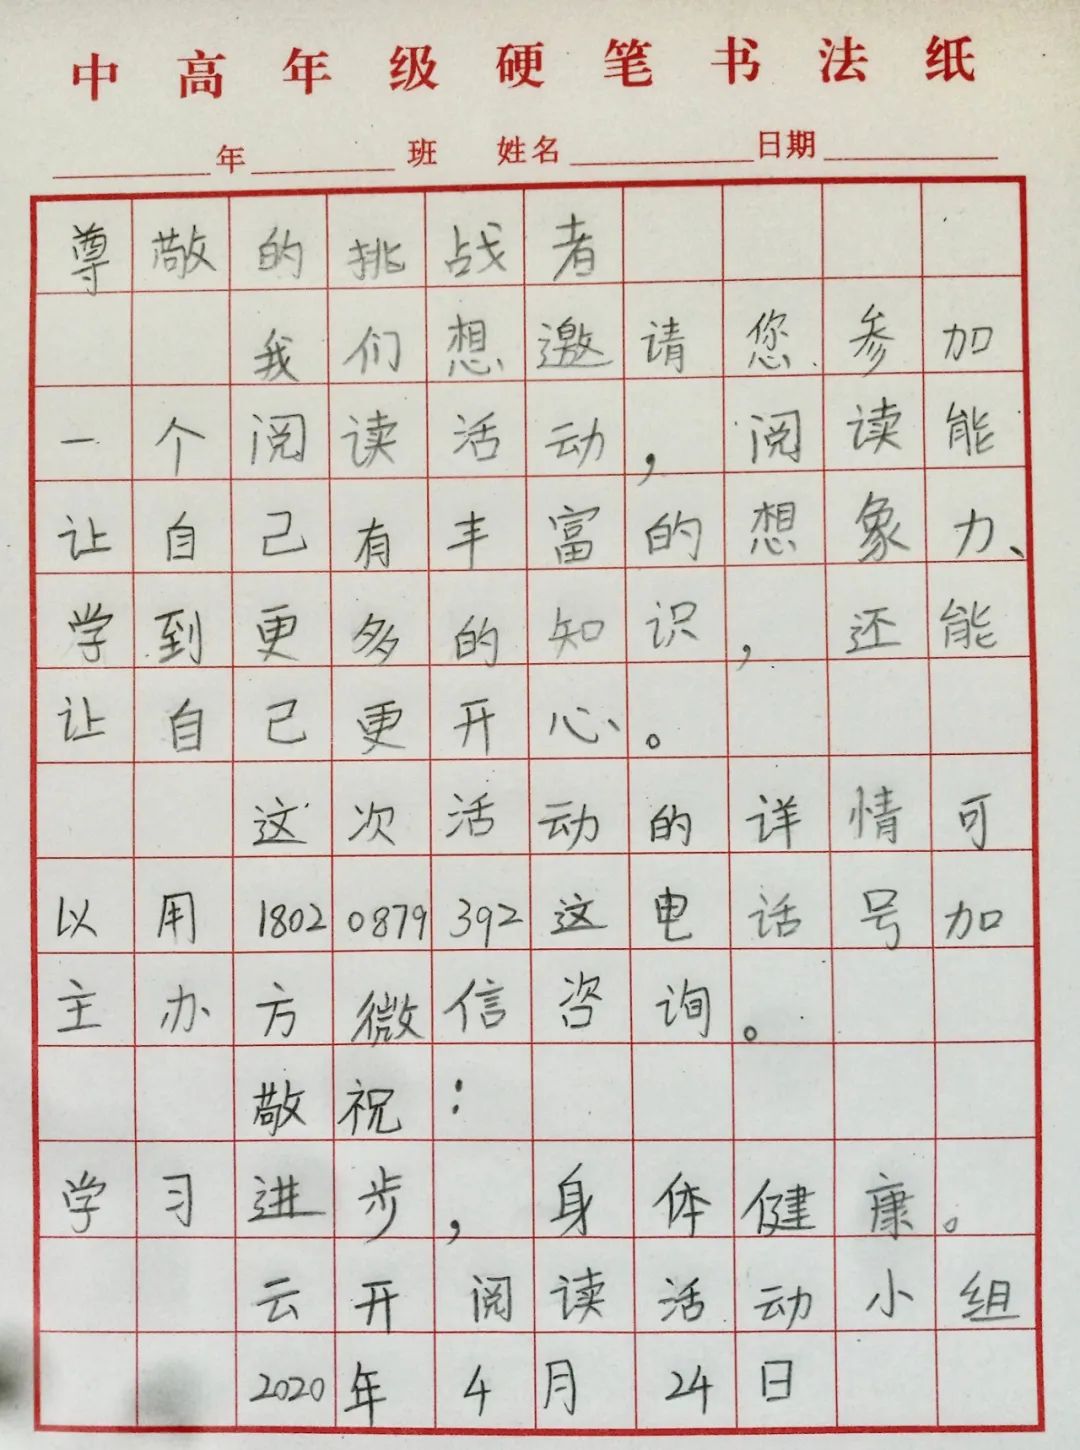 中高年级硬笔书法纸
年 班 姓名 日期
尊敬的挑战者
我们想邀请您参加
一个阅读活动，阅读能
让自己有丰富的想象力、
学到更多的知识，还能
让自己更开心。
这次活动的详情可
以用18020879392这电话号加
主办方微信咨询。
敬祝：
学习进步，身体健康。
云开阅读活动小组
2020年4月24日